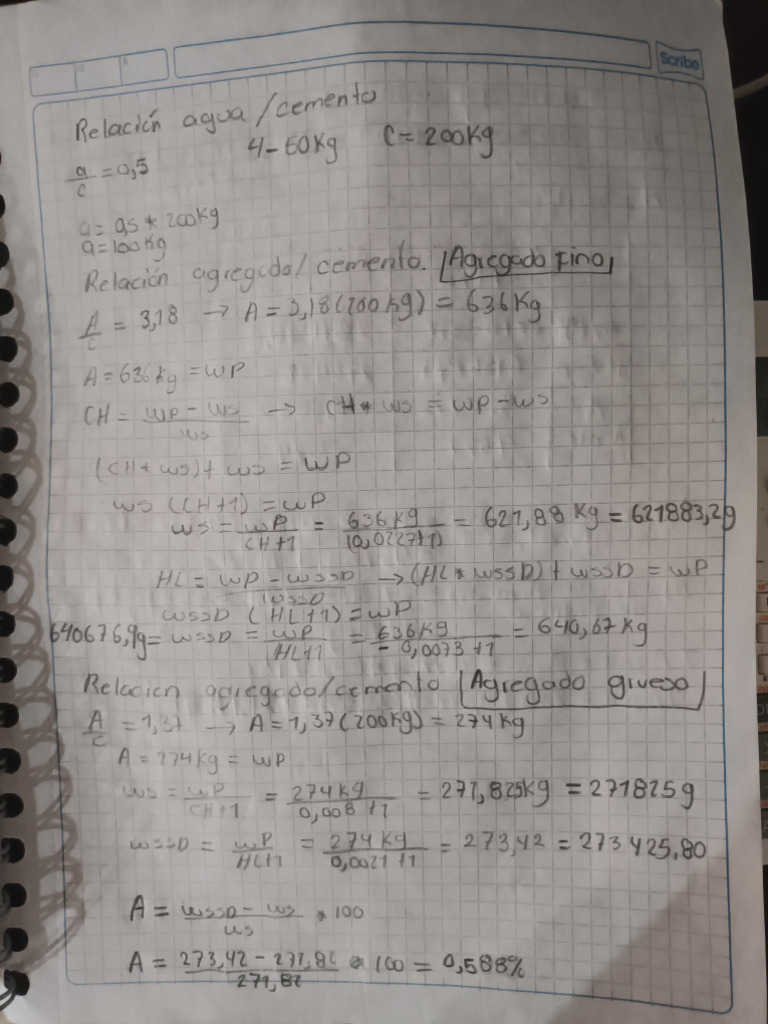 Scribe
Relación agua/cemento
4-50Kg C=200Kg
a/c = 0,5
a= 0,5 * 200Kg
a=100Kg
Relación agregado/cemento. Agregado Fino
A/c = 3,18 → A = 3,18(200 kg) = 636 Kg
A=636 kg = WP
CH = WP - WS / WS → CH * WS = WP - WS
(CH * WS) + WS = WP
WS (CH+1) = WP
WS = WP / CH+1 = 636 KG / (0,0227+1) = 621,88 Kg = 621883,2g
HL = WP - WSSD / WSSD → (HL * WSSD) + WSSD = WP
WSSD (HL+1) = WP
640676,9g = WSSD = WP / HL+1 = 636 KG / - 0,0073 + 1 = 640,67 Kg
Relación agregado/cemento Agregado grueso
A/c = 1,37 → A = 1,37(200Kg) = 274 kg
A = 274 Kg = WP
WS = WP / CH+1 = 274 kg / 0,008 + 1 = 271,825kg = 271825g
WSSD = WP / HL+1 = 274 KG / 0,0021 + 1 = 273,42 = 273 425,80
A = WSSD - WS / WS * 100
A = 273,42 - 271,82 / 271,82 * 100 = 0,588%